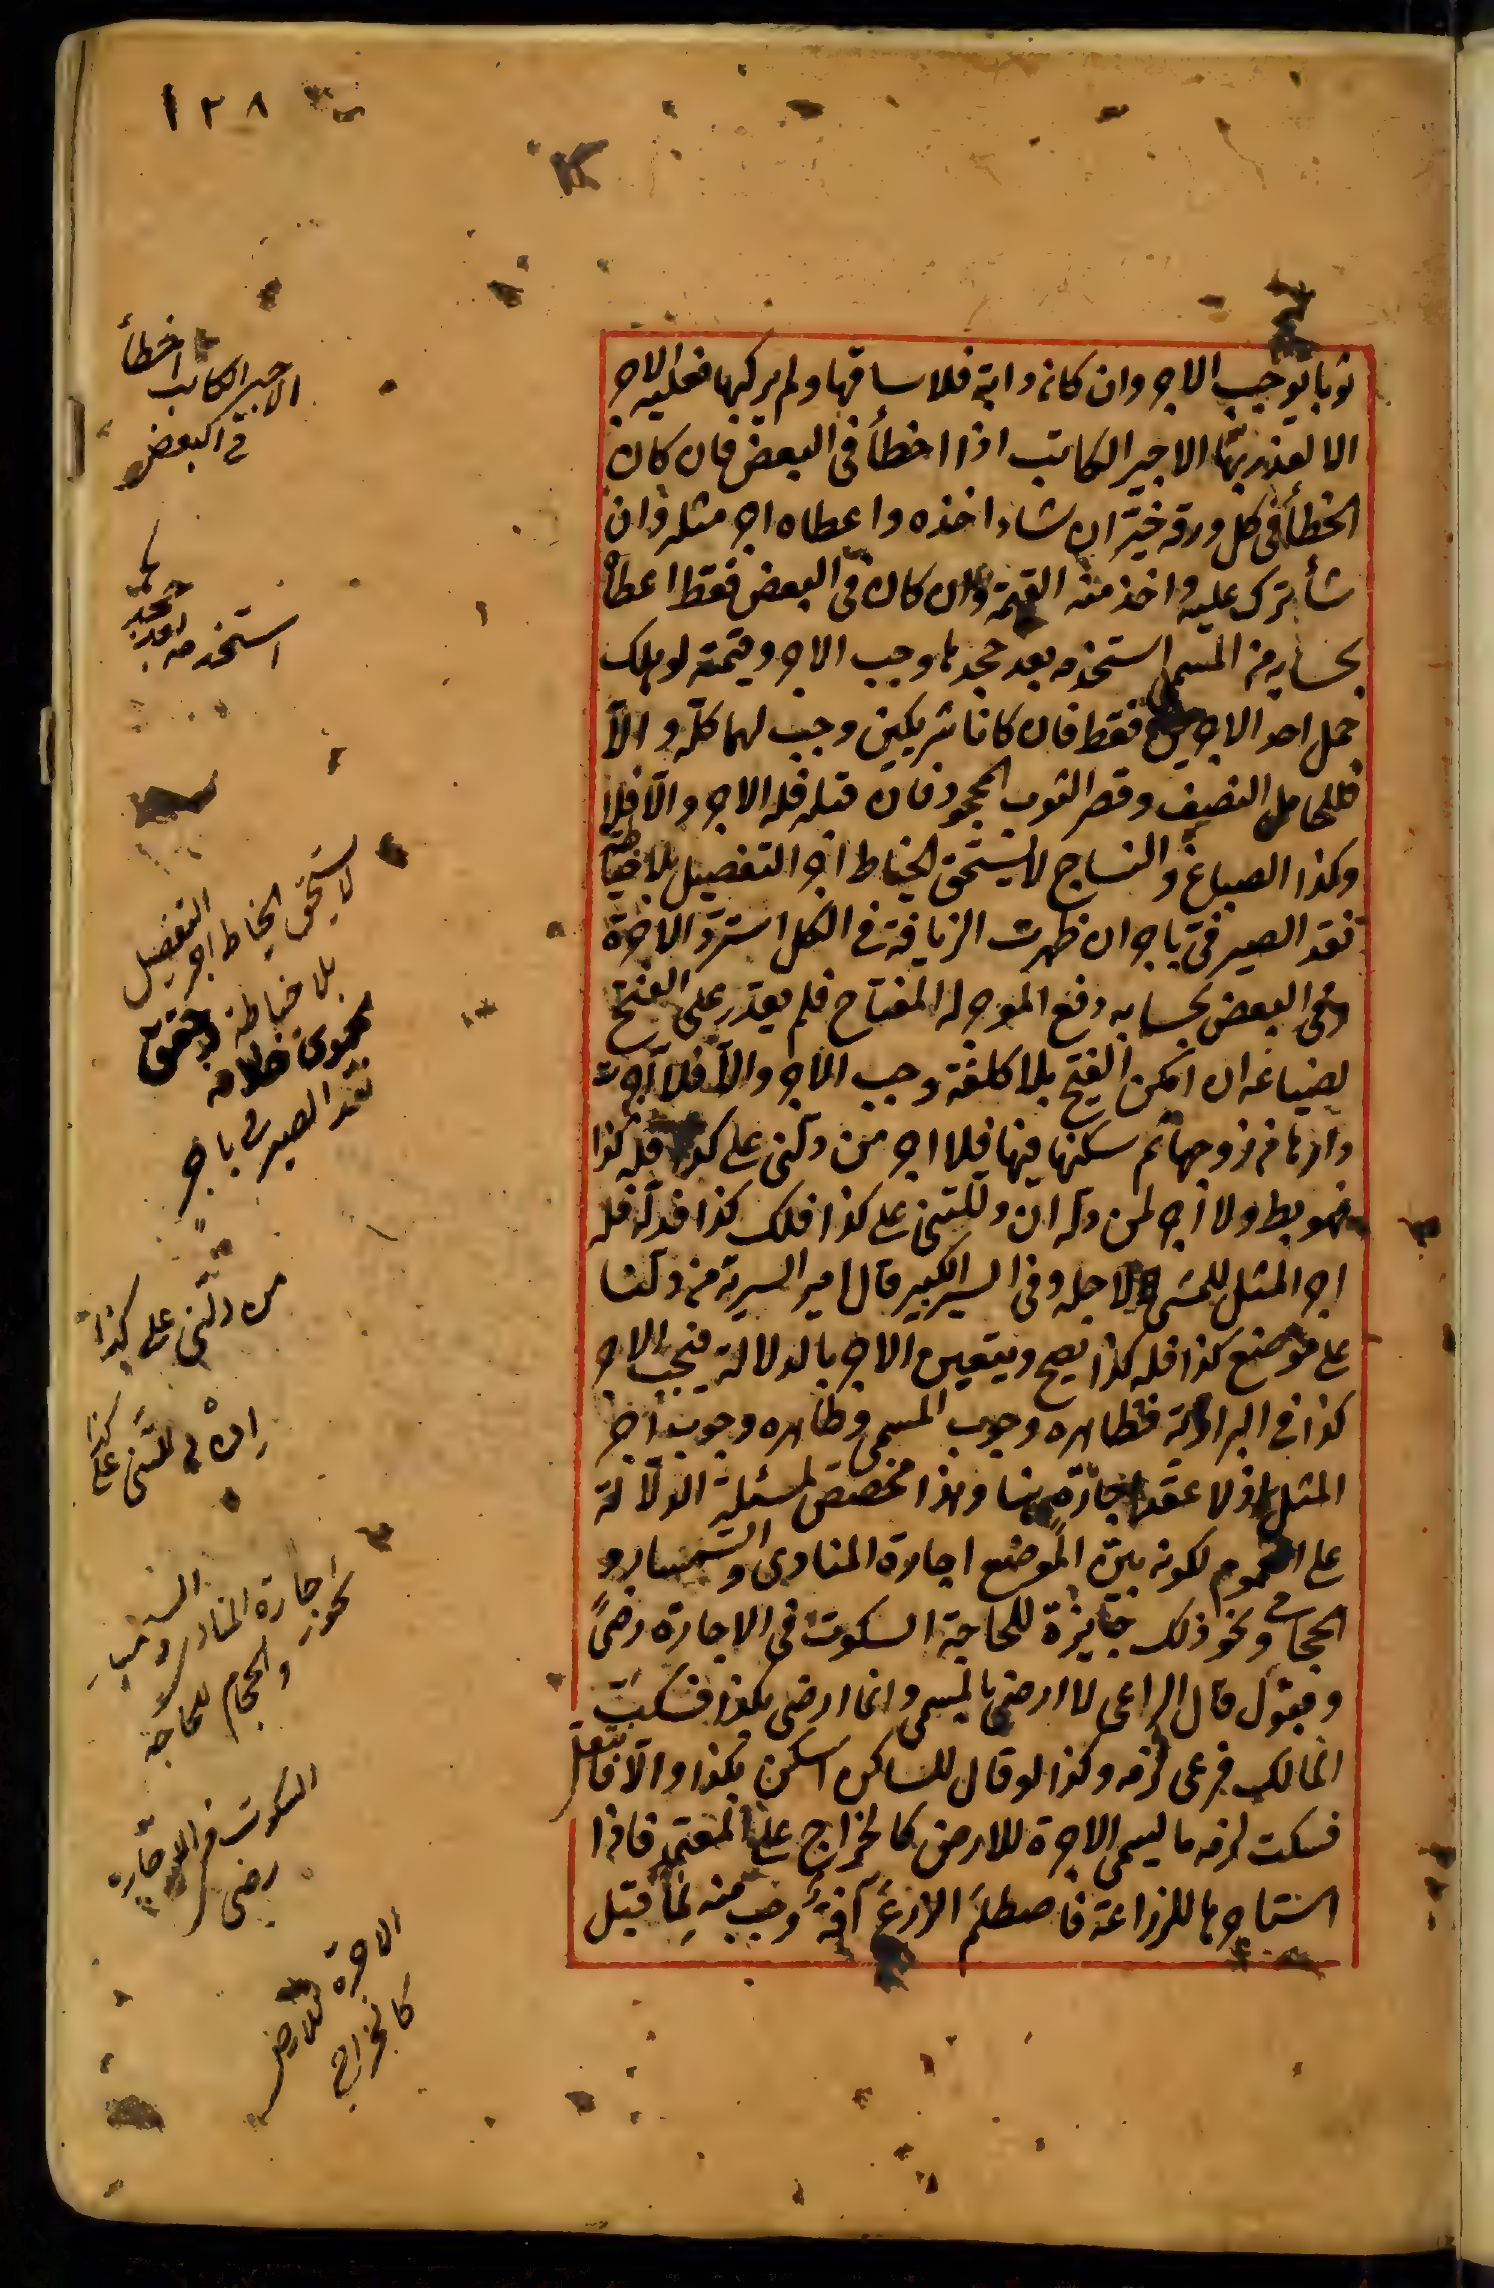 ١٢٨
ثوبا يوجب الاجر وان كانه دابة فلا ساقها ولم يركبها فعليه الاجر
الا لعذر بها الاجير الكاتب اذا اخطأ فى البعض فان كان
الخطأ فى كل ورقة خيّر ان شاء اخذه واعطاه اجر مثله وان
شأ ترك عليه واخذ منه القيمة وان كان فى البعض فقط اعطاه
بحسابه من المسمى استخدمه بعد جحدها وجب الاجر وقيمته لو هلك
حمل احد الاجيرين فقط فان كانا شريكين وجب لهما كله والاّ
فللحامل النصف وقصر الثوب المجحود فان قبله فله الاجر والاّ فلا
وكذا الصباغ والنساج لا يستحق الخياط اجر التفصيل بلا خياطة
نقد الصيرفى باجر ان ظهرت الزيافة فى الكل استرد الاجرة
وفى البعض بحسابه دفع الموجر له المفتاح فلم يقدر على الفتح
لضياعه ان امكن الفتح بلا كلفة وجب الاجر والاّ فلا آجرت
دارها من زوجها ثم سكنها فيها فلا اجر من دلنى على كذا فله كذا
فهو بط ولا اجر لمن دله ان دللتنى على كذا فلك كذا فدله فله
اجر المثل للمشى لاجله وفى السير الكبير قال امير السرية من دلنا
على موضع كذا فله كذا يصح ويتعين الاجر بالدلالة فيجب الاجر
كذا فى البزازية فظاهره وجوب المسمى وظاهره وجوب اجر
المثل اذ لا عقد اجارة هنا وهذا مخصص لمسئلة الدلالة
على العموم لكونه بين الموضع اجارة المنادى والسمسار و
الحجامى ونحو ذلك جايزة للحاجة السكوت فى الاجارة رضىً
وقبول قال الراعى لا ارضى بالمسمى وانما ارضى بكذا فسكت
المالك فرعى لزمه وكذا لو قال للساكن اسكن بكذا والاّ فانتقل
فسكت لزمه ما يسمى الاجرة للارض كالخراج على المعتمد فاذا
استاجرها للزراعة فاصطلم الزرع آفة وجب منه لما قبل
الاجير الكاتب اخطأ
فى البعض
استخدمه بعد
جحدها
لا يستحق الخياط اجر التفصيل
بلا خياطة
نقد الصيرفى باجر
من دلنى على كذا
ان دللتنى على كذا
تجوز اجارة المنادى والسمسار
والحجام للحاجة
السكوت فى الاجارة
رضى
الاجرة للارض
كالخراج